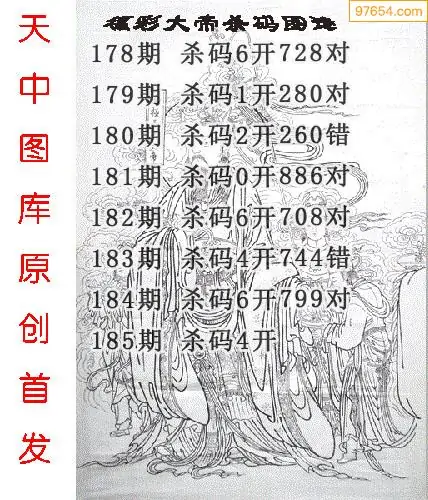 97654.com
福彩大帝杀码图逸
天中图库原创首发
178期 杀码6开728对
179期 杀码1开280对
180期 杀码2开260错
181期 杀码0开886对
182期 杀码6开708对
183期 杀码4开744错
184期 杀码6开799对
185期 杀码4开